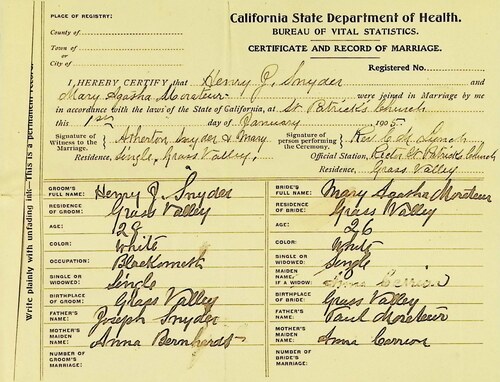 PLACE OF REGISTRY:
California State Department of Health.
County of
BUREAU OF VITAL STATISTICS.
Town of
CERTIFICATE AND RECORD OF MARRIAGE.
City of
Registered No.
I HEREBY CERTIFY, that Henry J. Snyder and
Mary Agatha Morateur were joined in Marriage by me
in accordance with the laws of the State of California, at St Patricks Church
this 1st day of January 1905
Signature of Witness to the Marriage, Atherton Snyder & Mary
Residence, Single, Grass Valley,
Signature of person performing the Ceremony. Rev C. M. Lynch
Official Station, Rector St Patricks Church
Residence, Grass Valley
Write plainly with unfading ink—This is a permanent record
GROOM'S FULL NAME: Henry J. Snyder
RESIDENCE OF GROOM: Grass Valley
AGE: 28
COLOR: White
OCCUPATION: Blacksmith
SINGLE OR WIDOWED: Single
BIRTHPLACE OF GROOM: Grass Valley
FATHER'S NAME: Joseph Snyder
MOTHER'S MAIDEN NAME: Anna Bernhardt
NUMBER OF GROOM'S MARRIAGE:
BRIDE'S FULL NAME: Mary Agatha Morateur
RESIDENCE OF BRIDE: Grass Valley
AGE: 26
COLOR: White
SINGLE OR WIDOWED: Single
MAIDEN NAME, IF A WIDOW:
BIRTHPLACE OF BRIDE: Grass Valley
FATHER'S NAME: Paul Morateur
MOTHER'S MAIDEN NAME: Anna Carrion
NUMBER OF BRIDE'S MARRIAGE: